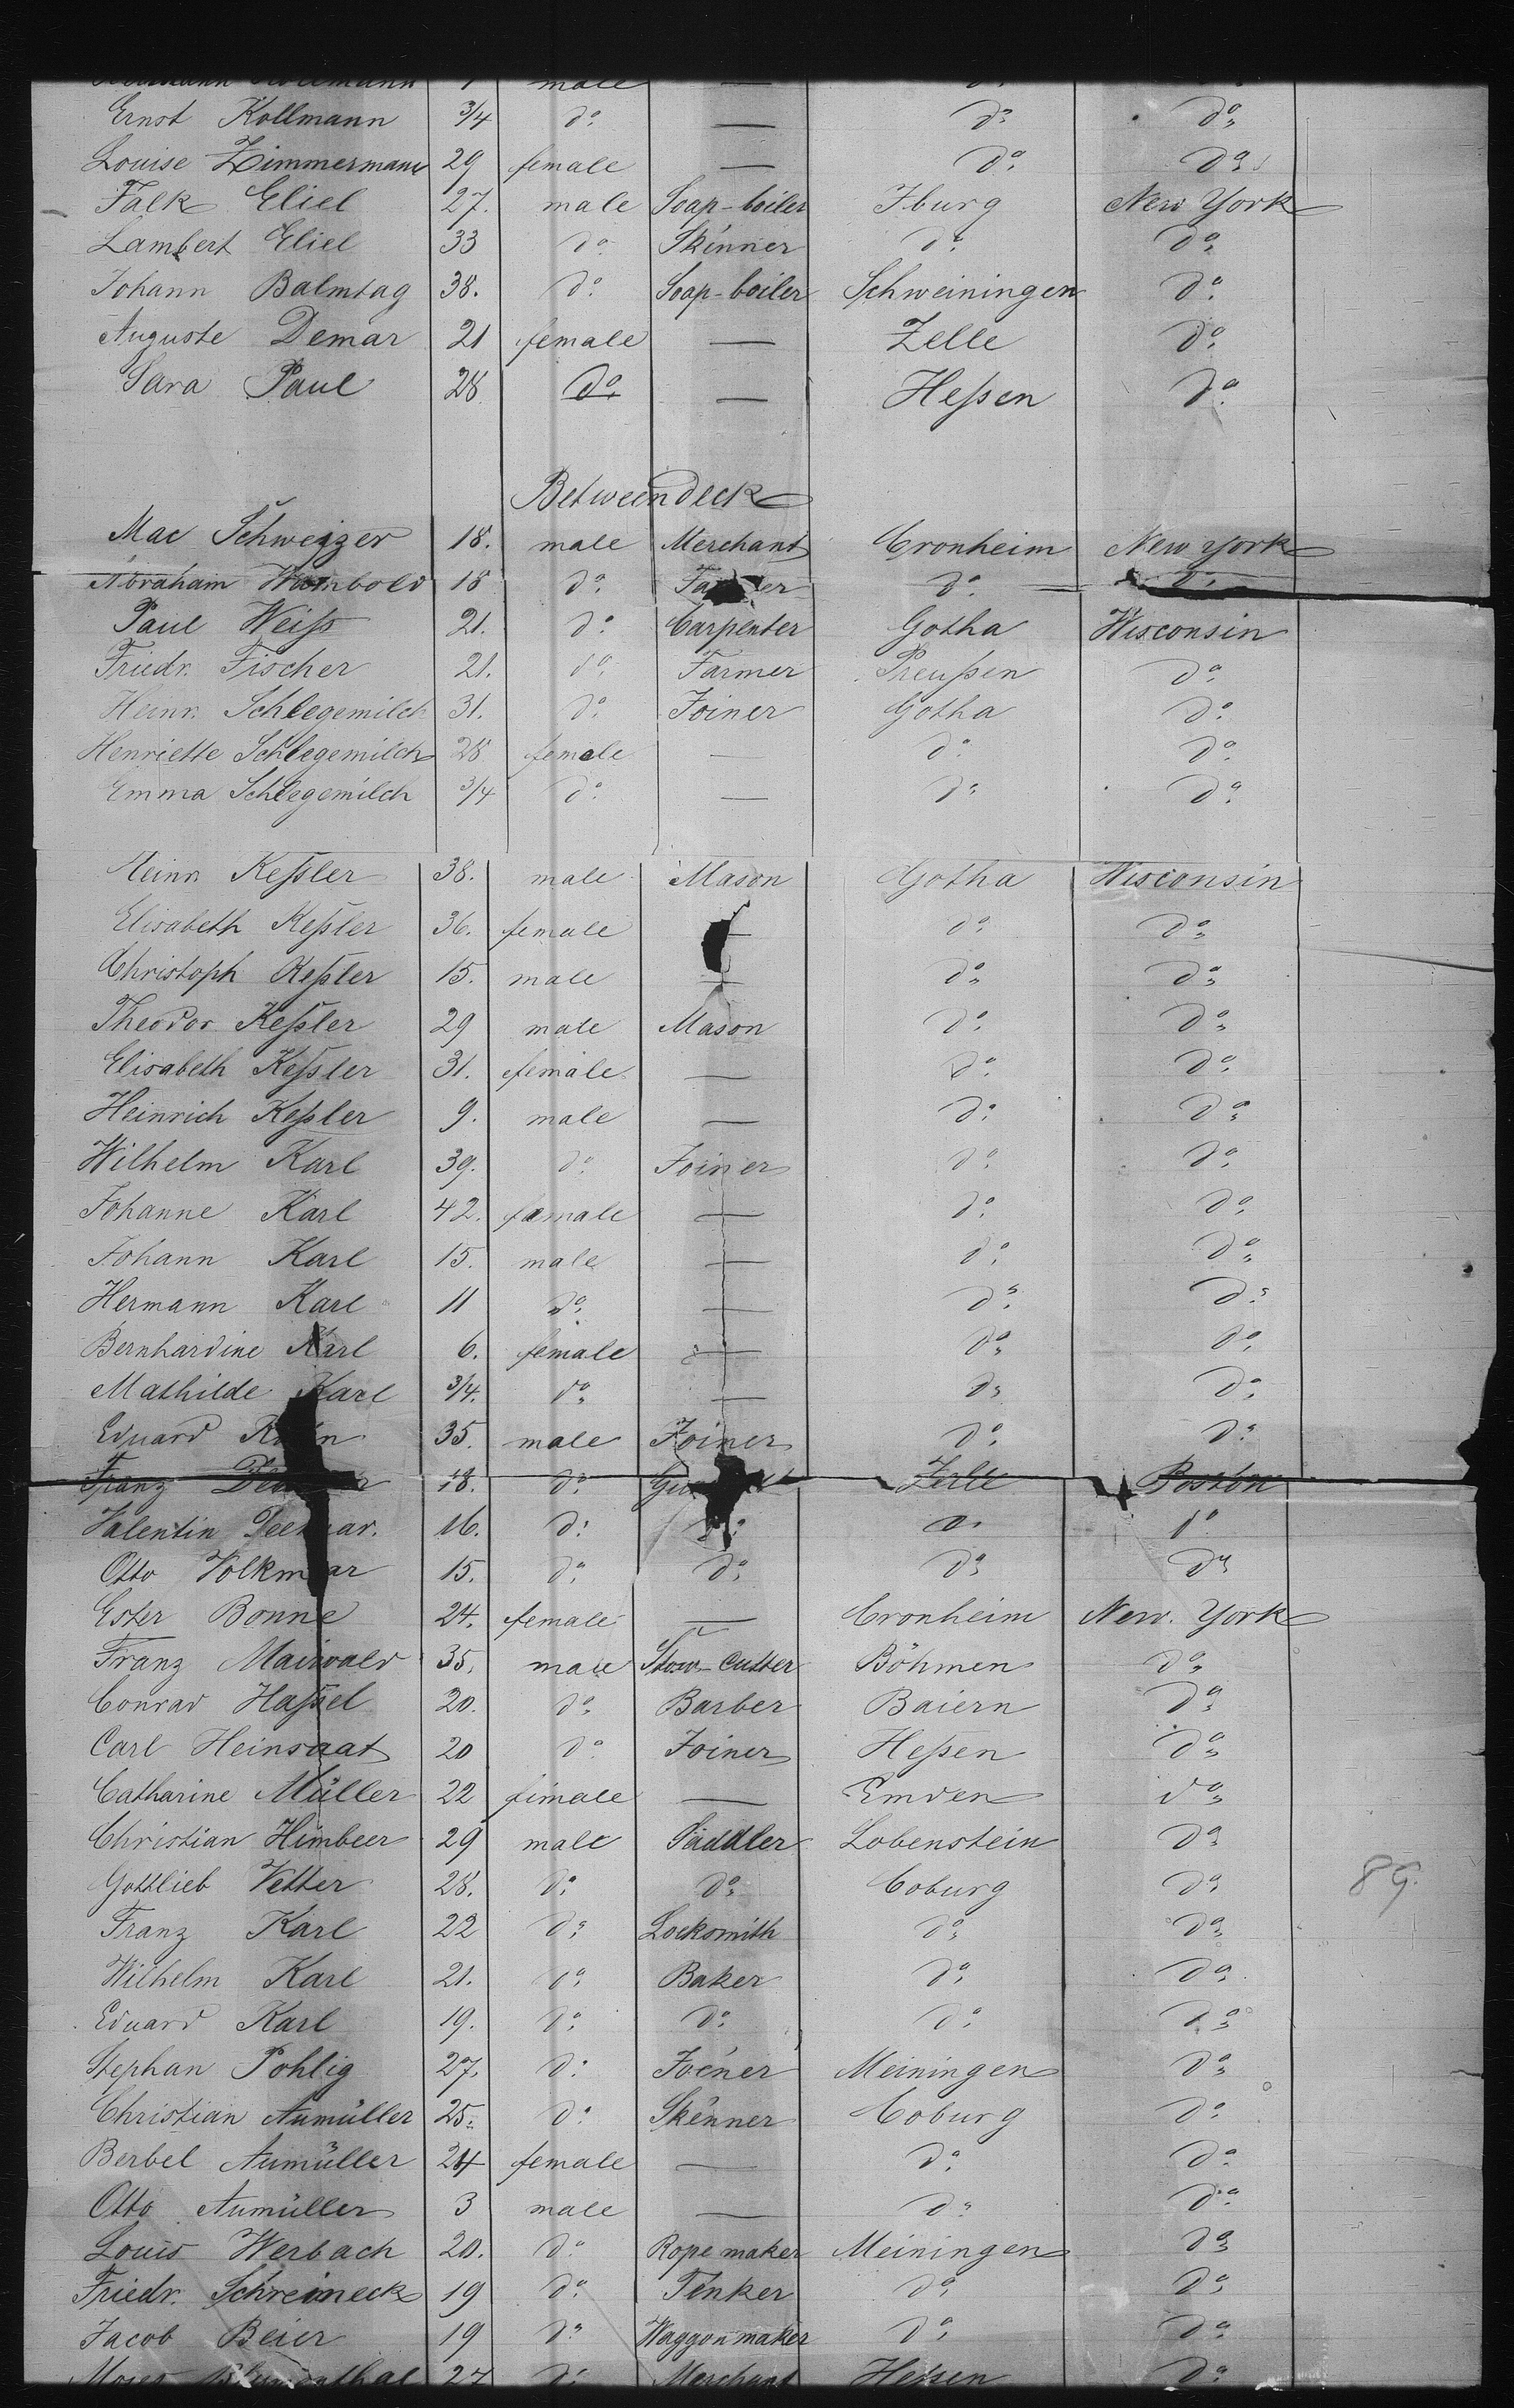 male — do do
Ernst Kollmann 3/4 do — do do
Louise Zimmermann 29 female — do do
Falk Eliel 27. male Soap-boiler Iburg New York
Lambert Eliel 33 do Skinner do do
Johann Balmtag 38. do Soap-boiler Schweiningen do
Auguste Demar 21 female — Zelle do
Sara Paul 28 do — Heßen do
Between deck
Mac Schweizer 18. male Merchant Cronheim New York
Abraham Wambold 18 do do do
Paul Weiß 21. do Carpenter Gotha Wisconsin
Friedr. Fischer 21. do Farmer Preußen do
Heinr. Schlegemilch 31. do Joiner Gotha do
Henriette Schlegemilch 28 female — do do
Emma Schlegemilch 3/4 do — do do
Heinr. Keßler 38. male Mason Gotha Wisconsin
Elisabeth Keßler 36. female — do do
Christoph Keßler 15. male — do do
Theodor Keßler 29 male Mason do do
Elisabeth Keßler 31. female — do do
Heinrich Keßler 9. male — do do
Wilhelm Karl 39. do Joiner do do
Johanne Karl 42. female — do do
Johann Karl 15. male — do do
Hermann Karl 11 do — do do
Bernhardine Karl 6. female — do do
Mathilde Karl 3/4. do — do do
Eduard 35. male Joiner do do
Franz 18. do Zelle Boston
Valentin 16. do do do do
Otto Volkmar 15. do do do do
Ester Bonne 24. female — Cronheim New. York
Franz Maiwald 35. male cutter Böhmen do
Conrad Haßel 20. do Barber Baiern do
Carl Heinsaat 20 do Joiner Heßen do
Catharine Müller 22 fimale — Emden do
Christian Himbeer 29 male Saddler Lobenstein do
Gottlieb Vetter 28. do do Coburg do
89.
Franz Karl 22 do Locksmith do do
Wilhelm Karl 21. do Baker do do
Eduard Karl 19. do do do do
Stephan Pohlig 27. do Joener Meiningen do
Christian Aumüller 25. do Skenner Coburg do
Berbel Aumüller 24 female — do do
Otto Aumüller 3 male — do do
Louis Werbach 20. do Rope maker Meiningen do
Friedr. Schreineck 19 do Tenker do do
Jacob Beier 19 do Waggon maker do do
Moses Blumenthal 27 do Merchant Heßen do